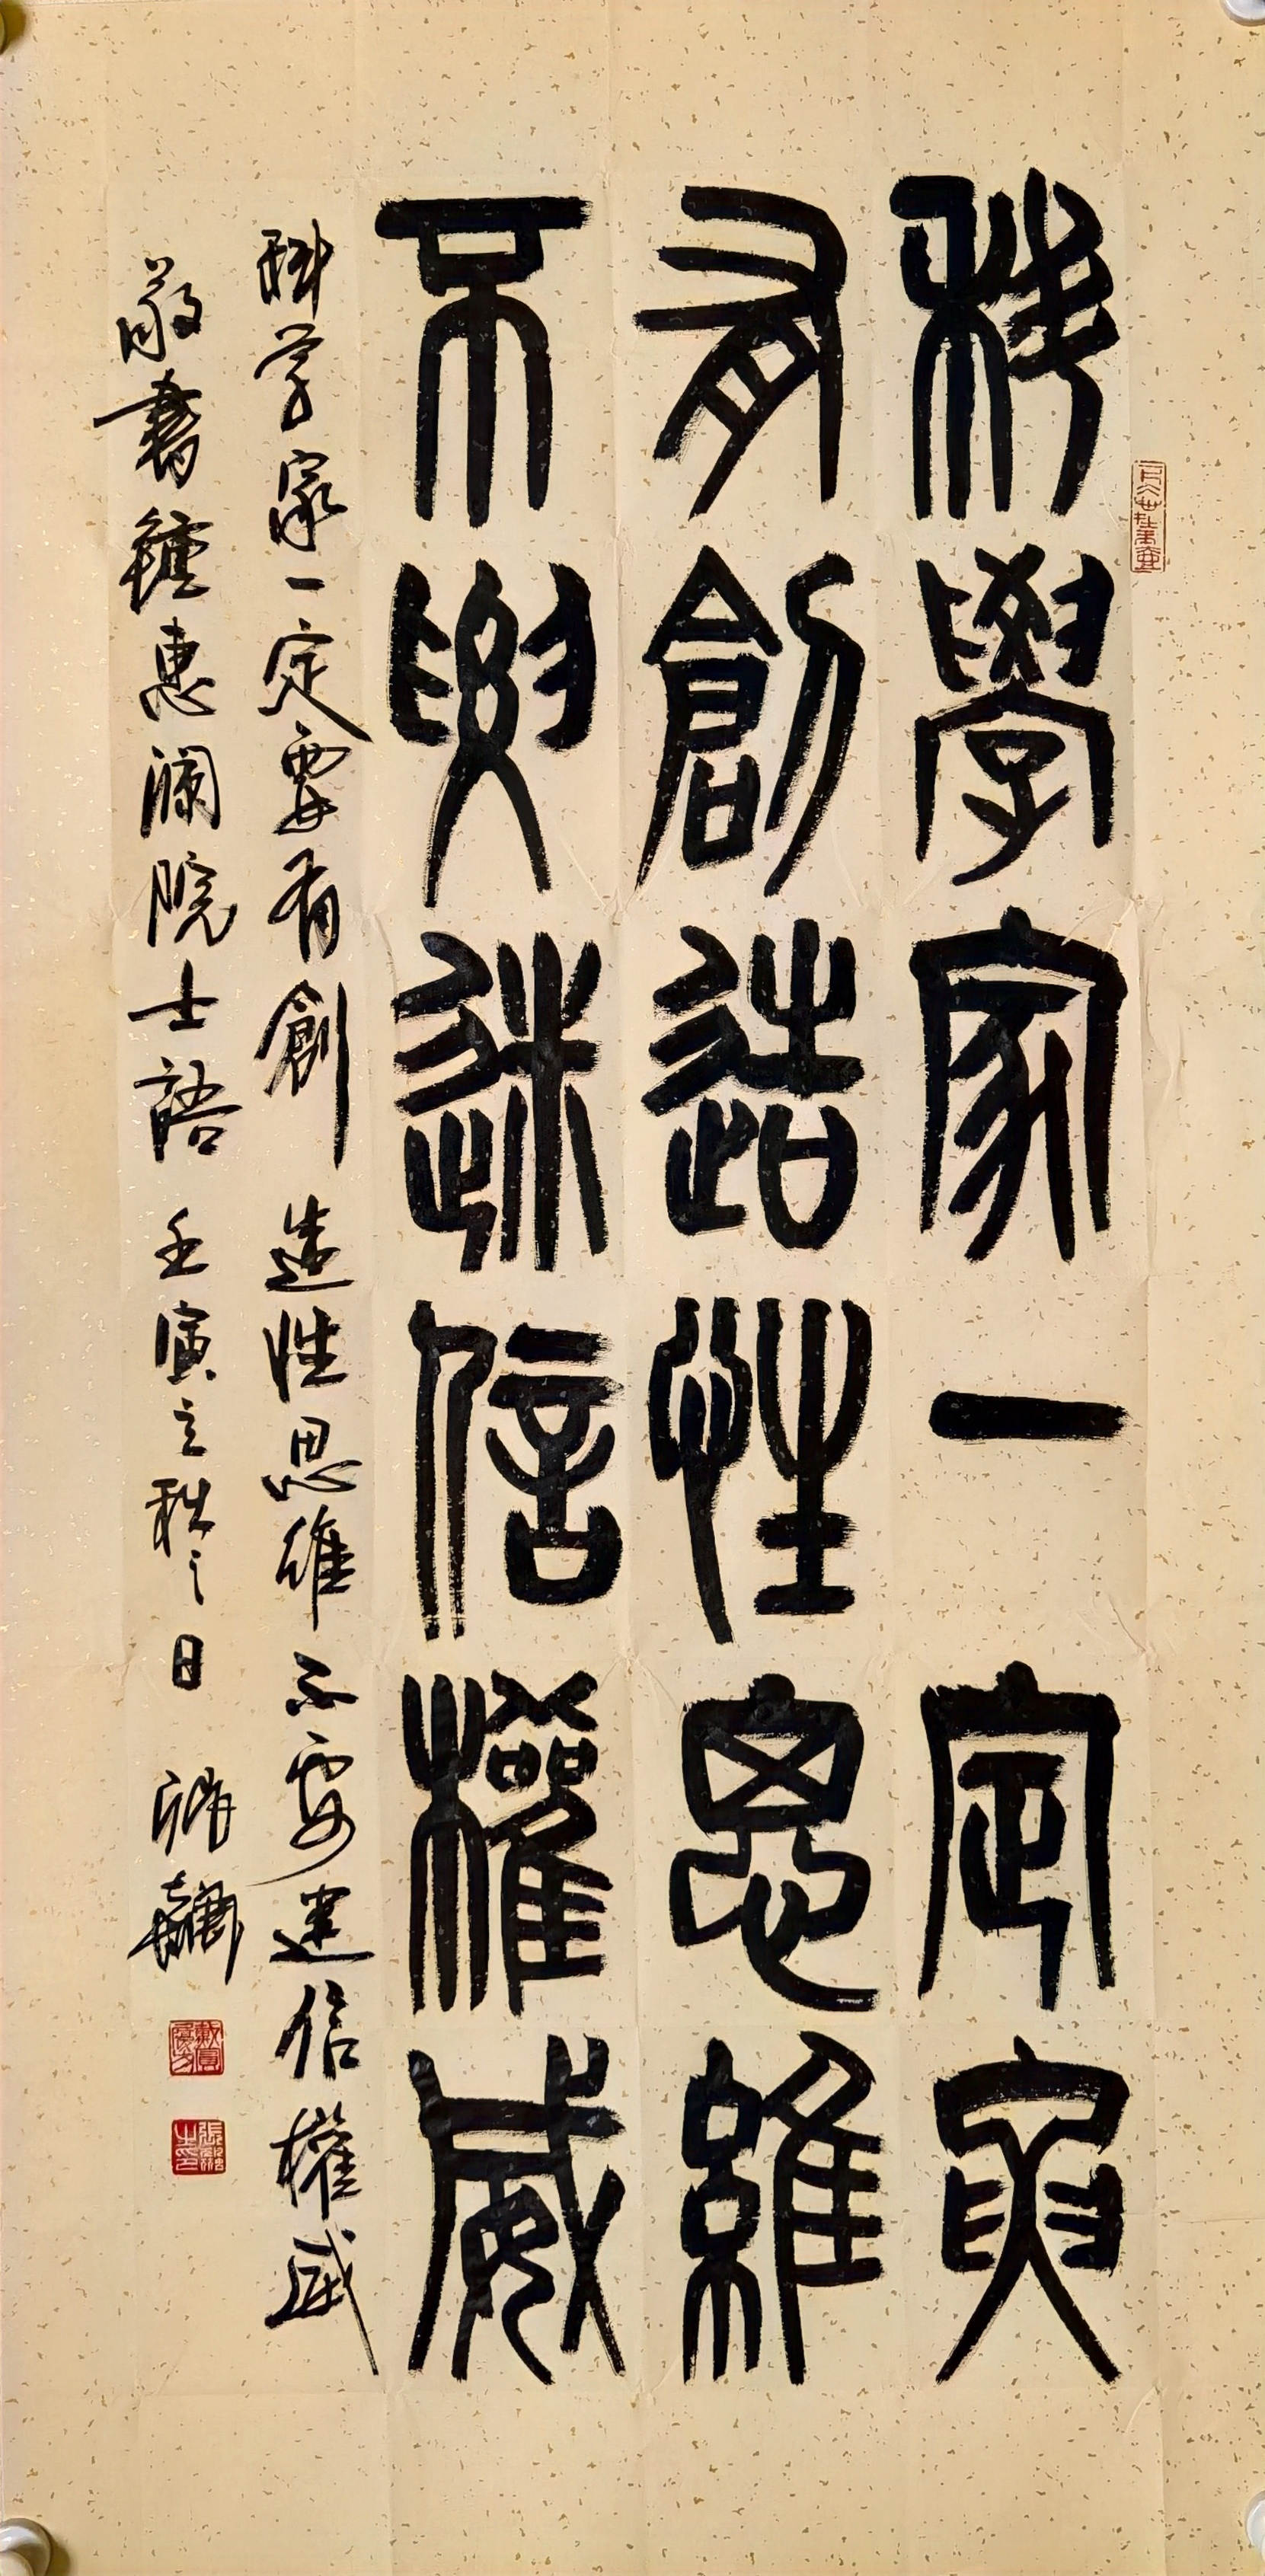 科學家一定要
有創造性思維
不要迷信權威
科学家一定要有創造性思維不要迷信權威
敬書鐘惠澜院士語 壬寅立秋之日